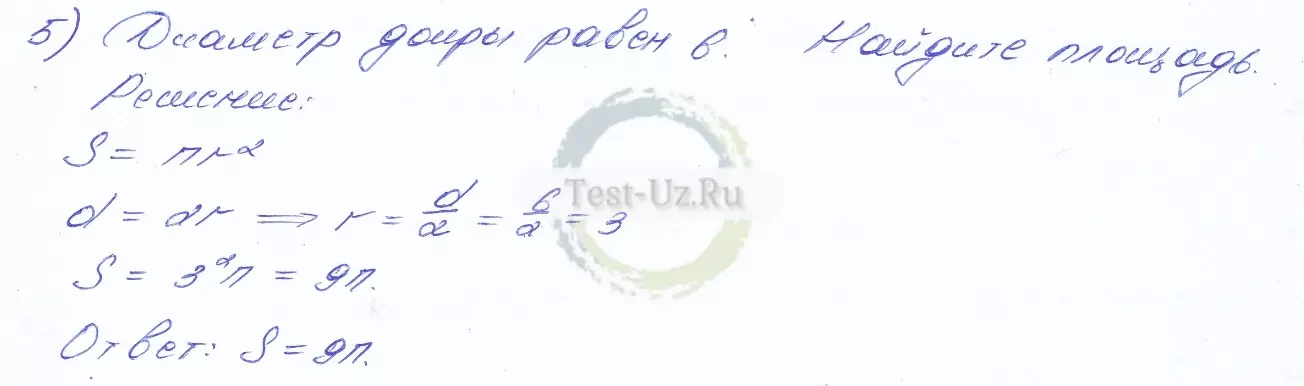 5) Диаметр доиры равен 6. Найдите площадь.
Решение:
S = πr²
d = 2r ⟹ r = d/2 = 6/2 = 3
S = 3²π = 9π.
Ответ: S = 9π.
Test-Uz.Ru